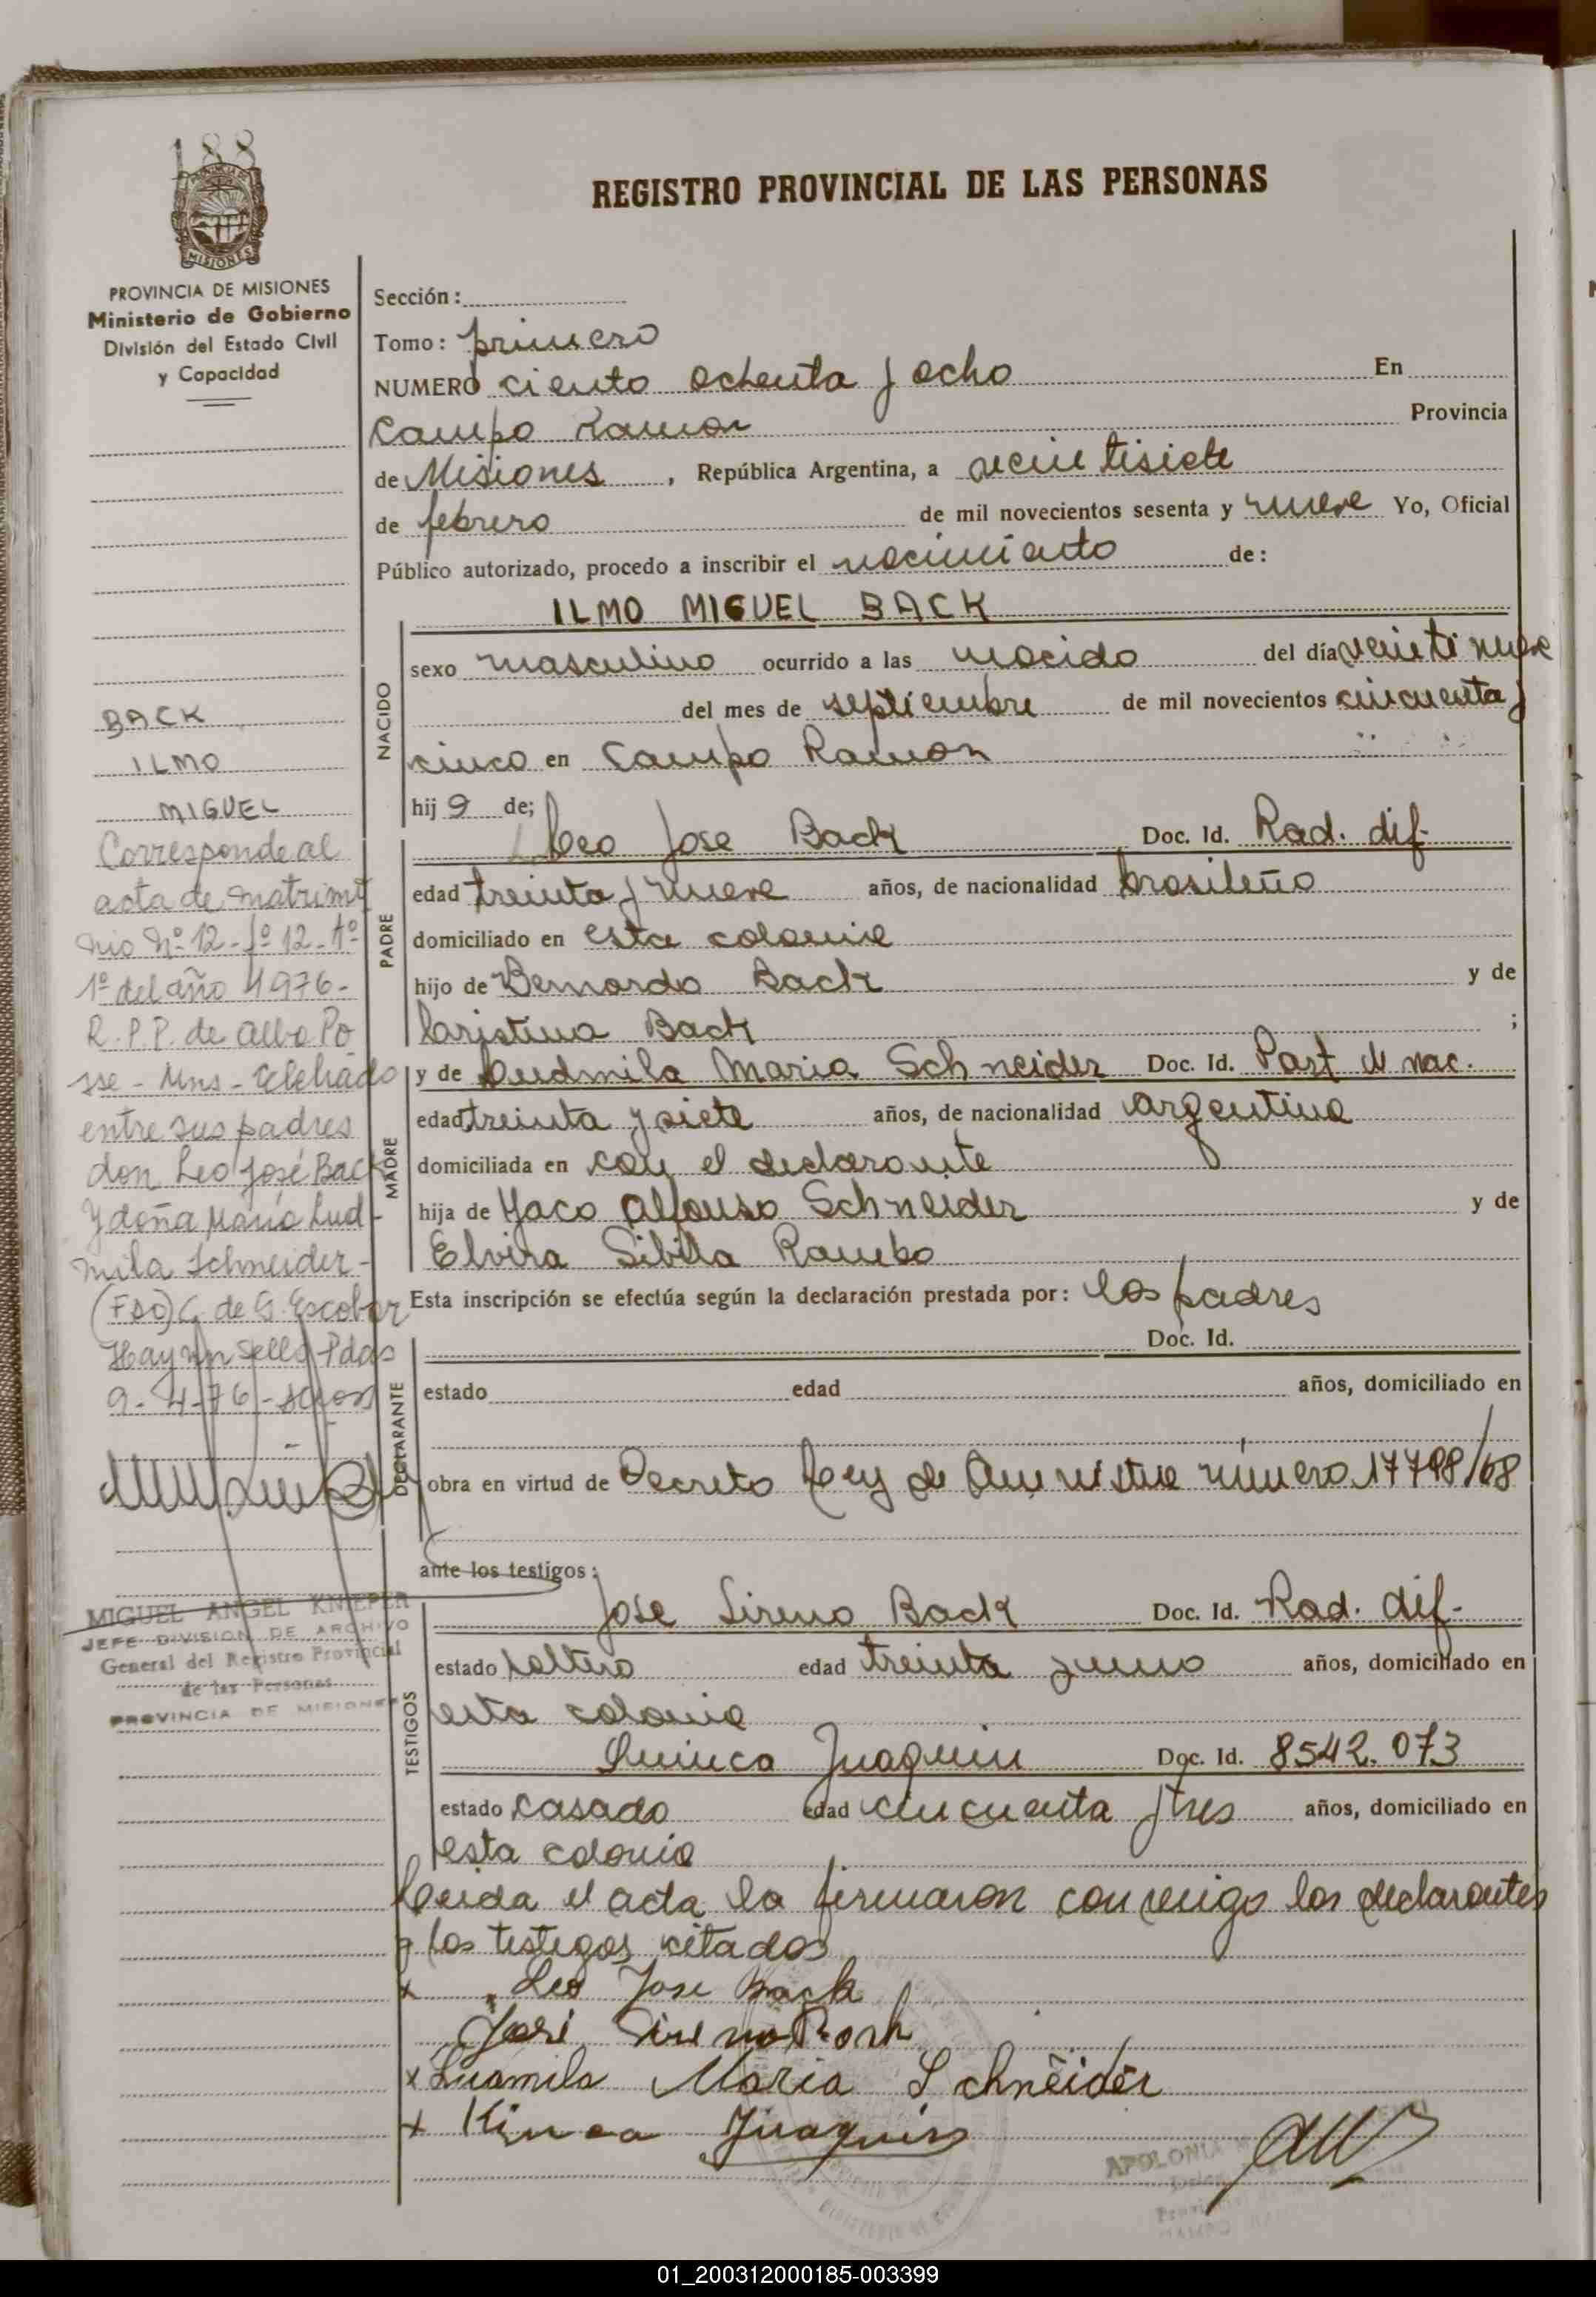 188
REGISTRO PROVINCIAL DE LAS PERSONAS
PROVINCIA DE MISIONES
MISIONES
PROVINCIA DE MISIONES
Ministerio de Gobierno
División del Estado Civil
y Capacidad
BACK
ILMO
MIGUEL
Corresponde al
acta de matrimo
nio Nº 12 - fº 12 - tº
1º del año 1976 -
R.P.P. de Alba Po
sse - Mns - Celebrado
entre sus padres
don Leo José Back
y doña María Lud
mila Schneider -
(Fdo) C. de G. Escobar
Hay un sello Pdas
9-4-76 -
MIGUEL ANGEL KNIEPER
JEFE DIVISION DE ARCHIVO
General del Registro Provincial
de las Personas
PROVINCIA DE MISIONES
Sección:
Tomo: primero
NUMERO ciento ochenta y ocho En
Campo Ramon Provincia
de Misiones, República Argentina, a veintisiete
de febrero de mil novecientos sesenta y nueve Yo, Oficial
Público autorizado, procedo a inscribir el nacimiento de:
ILMO MIGUEL BACK
NACIDO
sexo masculino ocurrido a las nacido del día veintinueve
del mes de septiembre de mil novecientos cincuenta y
cinco en Campo Ramon
hij o de;
PADRE
Leo Jose Back Doc. Id. Rad. dif.
edad treinta y nueve años, de nacionalidad brasileño
domiciliado en esta colonia
hijo de Bernardo Back y de
Cristina Back ;
MADRE
y de Ludmila Maria Schneider Doc. Id. Part de nac.
edad treinta y siete años, de nacionalidad argentina
domiciliada en con el declarante
hija de Yaco Alfonso Schneider y de
Elvira Sibila Rambo
Esta inscripción se efectúa según la declaración prestada por: los padres
DECLARANTE
Doc. Id.
estado edad años, domiciliado en
obra en virtud de Decreto Ley de Amnistia número 17798/68
ante los testigos:
TESTIGOS
Jose Sireno Back Doc. Id. Rad. dif.
estado soltero edad treinta y uno años, domiciliado en
esta colonia
Quinca Juaquin Doc. Id. 8542.073
estado casado edad cincuenta y tres años, domiciliado en
esta colonia
Leida el acta la firmaron conmigo los declarantes
y los testigos citados
x Leo Jose Back
José Sireno Back
x Ludmila Maria Schneider
x Kinca Juaquin
APOLONIA
01_200312000185-003399